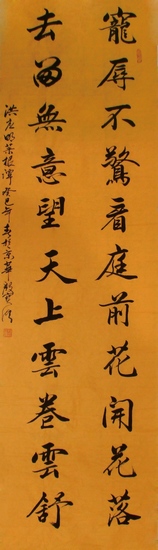 寵辱不驚看庭前花開花落
去留無意望天上雲卷雲舒
洪应明菜根谭癸巳年春於京華